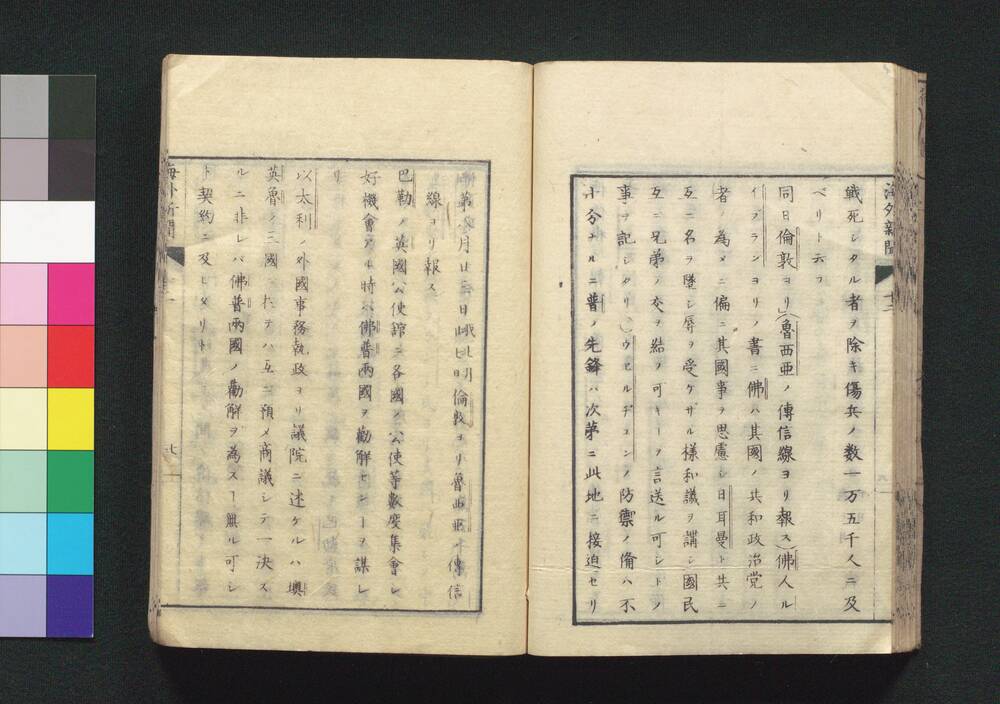 海外新聞
十二
戦死シタル者ヲ除キ傷兵ノ数一万五千人ニ及
ベリト云フ
同日倫敦ヨリ(魯西亜ノ傳信線ヨリ報ス)佛人ル
イブランヨリノ書ニ佛ハ其國ノ共和政治党ノ
者ノ為メニ偏ニ其國事ヲ思慮シ日耳曼ト共ニ
互ニ名ヲ墜シ辱ヲ受ケザル様和議ヲ講シ國民
互ニ兄弟ノ交ヲ結フ可キヿヲ言送ル可シトノ
事ヲ記シタリ(ウェルヂュンノ防禦ノ備ハ不
十分ナルニ普ノ先鋒ハ次第ニ此地ニ接迫セリ
第 月廿 日 倫敦ヨリ魯西亜ノ傳信
線ヨリ報ス
巴勒ノ英國公使館ニ各國ノ公使等数度集會シ
好機會アル時ハ佛普兩國ヲ勸解センヿヲ謀レ
リ
以太利ノ外國事務執政ヨリ議院ニ述ケルハ墺
英魯ノ三國 於テハ互ニ預メ商議シテ一決ス
ルニ非レバ佛普兩國ノ勸解ヲ為スヿ無ル可シ
ト契約ニ及しタリト
海外新聞
七